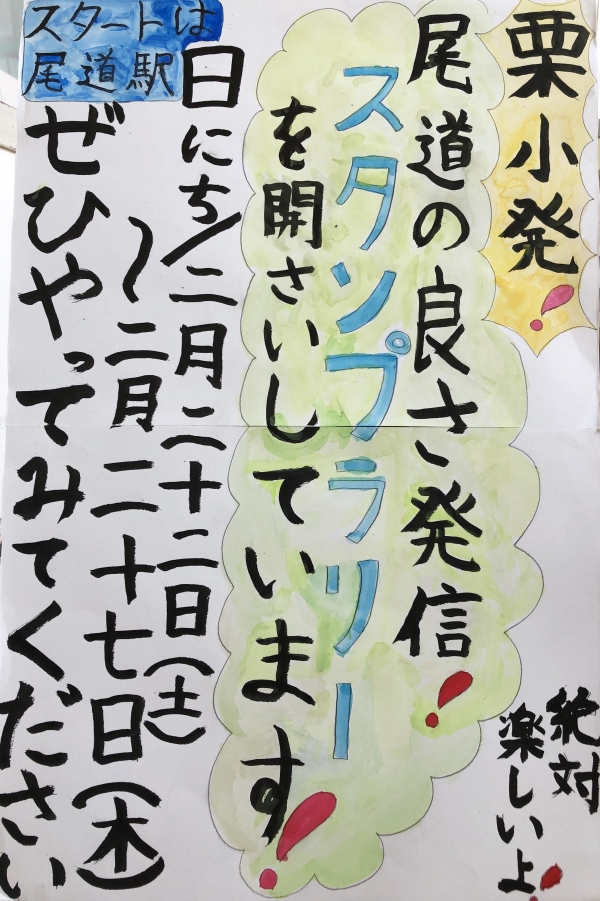 栗小発!
尾道の良さ発信!
スタンプラリー
を開さいしています!
日にち/二月二十二日(土)
〜二月二十七日(木)
ぜひやってみてください
スタートは
尾道駅
絶対
楽しいよ!